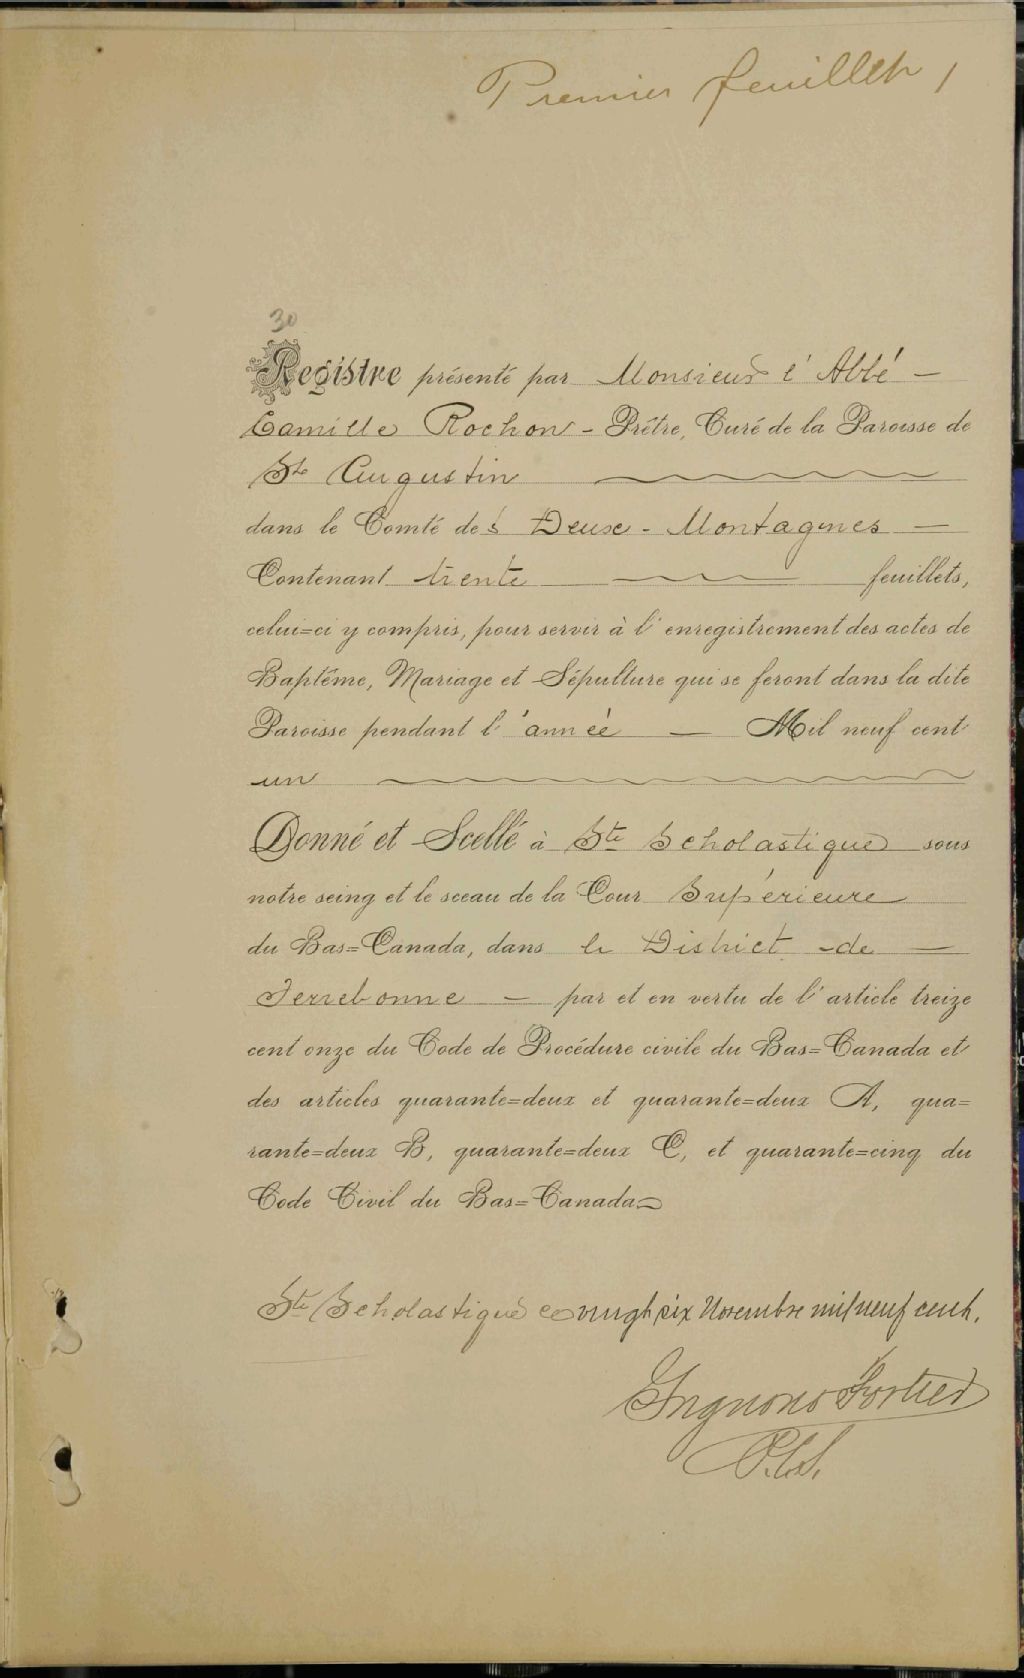 Premier feuillet 1
30
Registre présenté par Monsieur l'Abbé —
Camille Rochon - Prêtre, Curé de la Paroisse de
St Augustin
dans le Comté des Deux-Montagnes —
Contenant trente feuillets,
celui=ci y compris, pour servir à l'enregistrement des actes de
Baptême, Mariage et Sépulture qui se feront dans la dite
Paroisse pendant l'année — Mil neuf cent
un
Donné et Scellé à Ste Scholastique sous
notre seing et le sceau de la Cour Supérieure
du Bas=Canada, dans le District de —
Terrebonne — par et en vertu de l'article treize
cent onze du Code de Procédure civile du Bas=Canada et
des articles quarante=deux et quarante=deux A, qua=
rante=deux B, quarante=deux C, et quarante=cinq du
Code Civil du Bas=Canada
Ste Scholastique ce vingt six Novembre mil neuf cent.
Fortier
P.C.S.